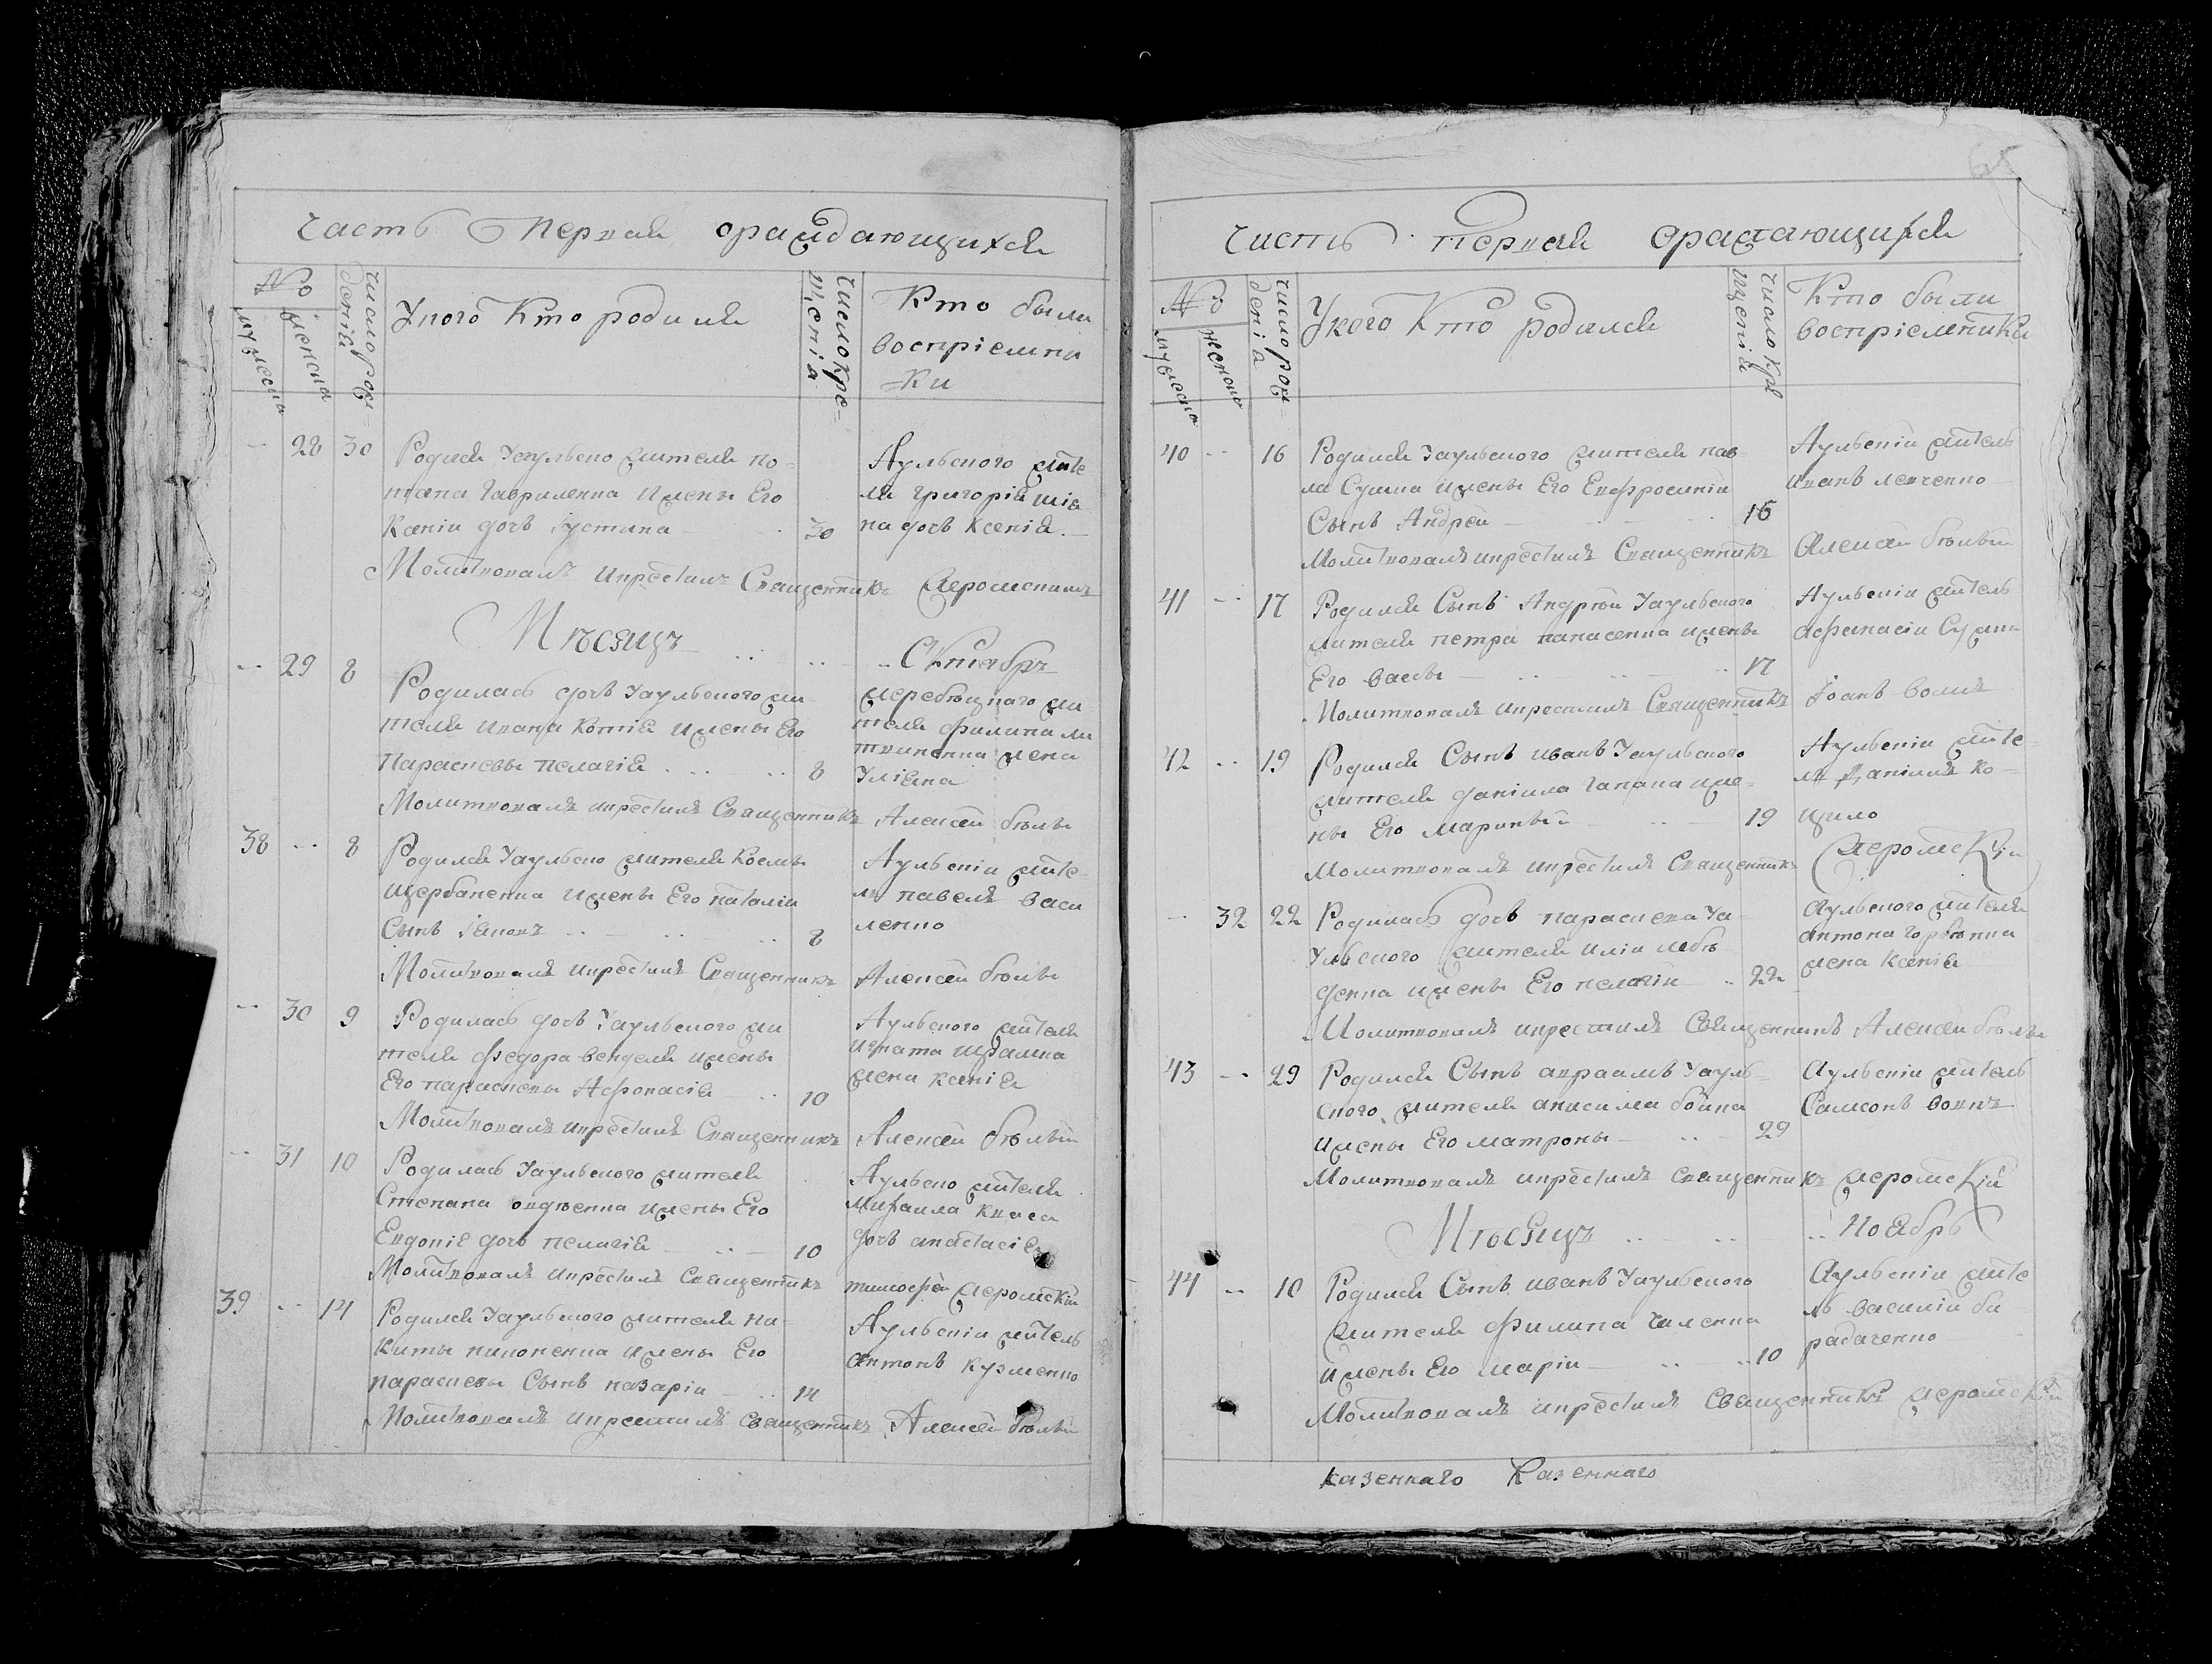 часть Первая ораждающихся
№
мужеска
женска
число рож=
денія
Укого Кто родился
число кре=
щенія
Кто были
воспріемни
=ки
-- 28 30 Родися Уаульвско жителя по=
тапа Гавриленка Ижены Его
Ксеніи дочь Іустина 30
Аульвского жите
ля григорія
на дочь Ксенія.
Молитвовалъ Икрестилъ Священникъ Жеромскимъ
Мѣсяцъ Октиабръ
-- 29 8 Родилась дочь Уаульвского жи
теля ивана Котія Ижены Его
Параскевы пелагія 8
жеребецкаго жи
теля филипа ли
твиненка жена
Уліяна
Молитвовалъ икрестилъ Священникъ Алексѣй бѣлы
38 -- 8 Родился Уаульвско жителя Космы
Щербаненка Ижены Его наталіи
Сынъ Іаковъ 8
Аульвскіи жите=
ль павелъ васи
ленко
Молитвовалъ икрестилъ Священникъ Алексѣй бѣлы
-- 30 9 Родилась дочь Уаульвского жи
теля федора венделя ижены
Его параскевы Афонасія 10
Аульвского жителя
игната
жена ксенія
Молитвовалъ икрестилъ Священникъ Алексѣй бѣлый
-- 31 10 Родилась Уаульвского жителя
Степана авдѣенка ижены Его
Евдокіе дочь пелагія 10
Аульвско жителя
михаила кваса
дочь анастасія
Молитвовалъ икрестилъ Священникъ тимофей жеромскій
39 -- 14 Родился Уаульвского жителя ни
киты никоненка ижены Его
параскевы Сынъ назарій 14
Аульвскіи житель
антонъ кузменко
Молитвовалъ икрестилъ священникъ Алексѣй бѣлый
65
часть первая Оражающихся
№
мужеска
женска
число рож
денія
Укого Кто родился
число кре
щенія
Кто были
воспріемники
40 -- 16 Родился Уаульвского жителя пав=
ла Сушка ижены Его Евфросиніи
Сынъ Андрей 16
Аульвскіи житель
иванъ левченко
Молитвовалъ икрестилъ Священникъ Алексѣй бѣлый
41 -- 17 Родился Сынъ Андрѣй Уаульвского
жителя петра панасенка ижены
Его вассы 17
Аульвскіи житель
афанасіи Сушко
Молитвовалъ икрестилъ Священникъ Іоанъ волик
42 -- 19 Родился Сынъ иванъ Уаульвского
жителя даніила гапана иже=
ны Его марины 19
Аульвскіи жите=
ль даніилъ ко=
щило
Молитвовалъ икрестилъ Священникъ Жеромскіи
-- 32 22 Родилась дочь параскева Уа=
ульвского жителя иліи лебѣ
денка ижены Его пелагіи 22
Аульвского жителя
антона горбѣнка
жена Ксенія
Молитвовалъ икрестилъ Священникъ Алексѣй бѣлы
43 -- 29 Родился Сынъ авраамъ Уауль
ского жителя анисима бойка
ижены Его матроны 29
Аульвскіи житель
Самсонъ вовкъ
Молитвовалъ икрестилъ священникъ жеромскій
Мѣсяцъ Ноябрь
44 -- 10 Родился Сынъ иванъ Уаульвского
жителя филипа галенка
ижены Его маріи 10
Аульвскіи жите
ль василіи бо
радаченко
Молитвовалъ икрестилъ Священникъ жеромскій
казеннаго Казеннаго